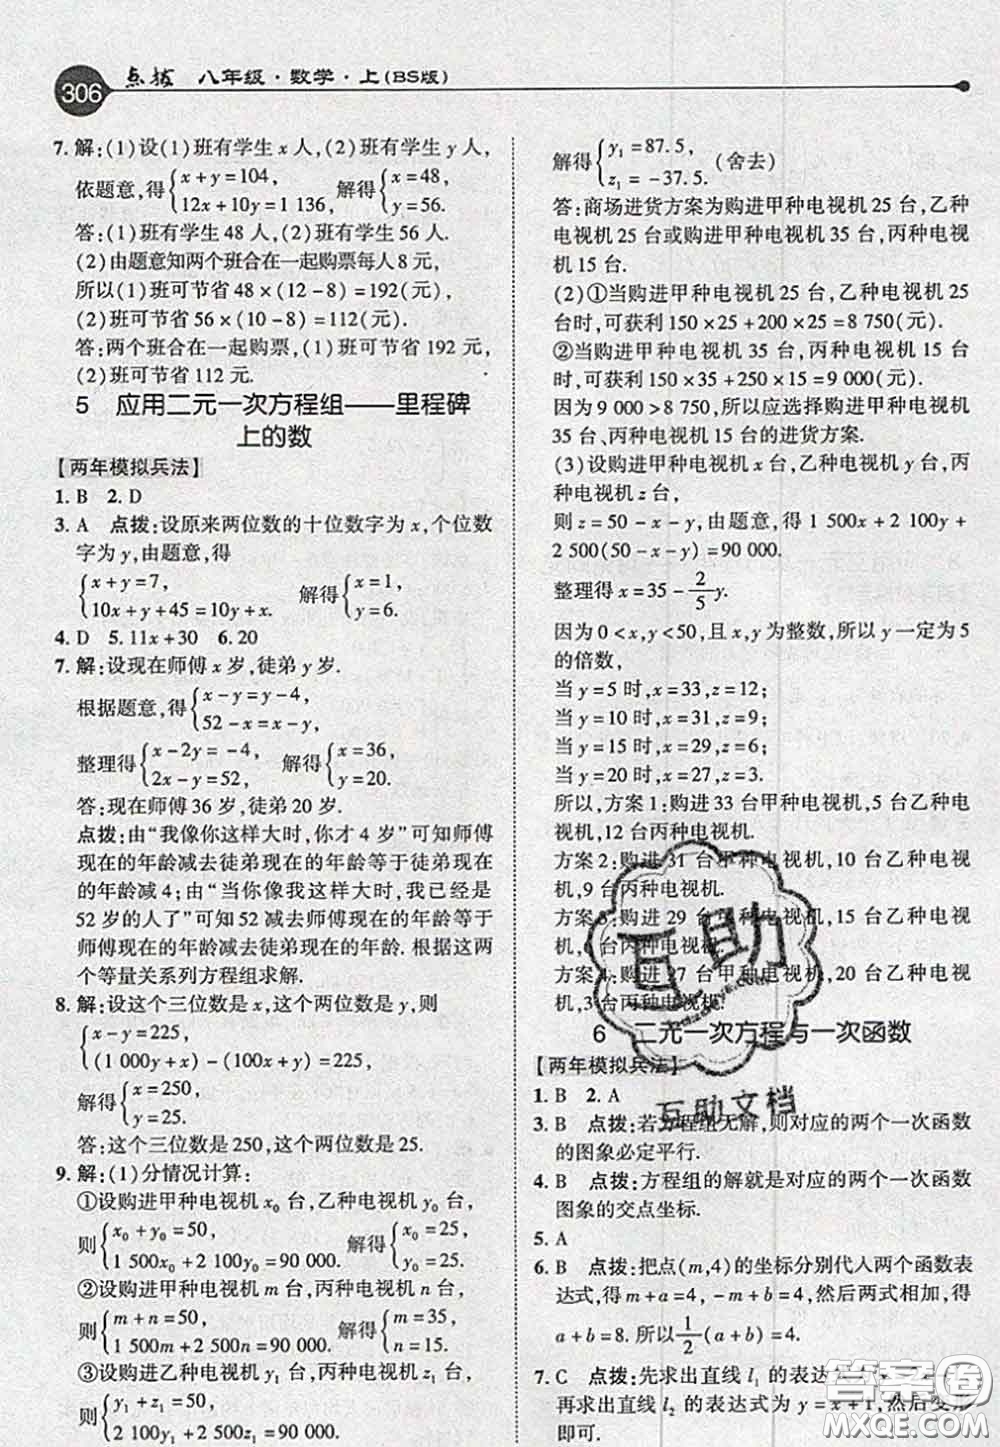 306 点拨 八年级·数学·上(BS版)
7. 解:(1)设(1)班有学生 x 人,(2)班有学生 y 人,
依题意,得{x+y=104, 12x+10y=1 136, 解得{x=48, y=56.
答:(1)班有学生 48 人,(2)班有学生 56 人.
(2)由题意知两个班合在一起购票每人8元,
所以(1)班可节省 48×(12-8)=192(元),
(2)班可节省 56×(10-8)=112(元).
答:两个班合在一起购票,(1)班可节省 192 元,
(2)班可节省 112 元.
5 应用二元一次方程组——里程碑
上的数
【两年模拟兵法】
1. B 2. D
3. A 点拨:设原来两位数的十位数字为 x,个位数
字为 y,由题意,得
{x+y=7, 10x+y+45=10y+x. 解得{x=1, y=6.
4. D 5. 11x+30 6. 20
7. 解:设现在师傅 x 岁,徒弟 y 岁.
根据题意,得{x-y=y-4, 52-x=x-y.
整理得{x-2y=-4, 2x-y=52, 解得{x=36, y=20.
答:现在师傅 36 岁,徒弟 20 岁.
点拨:由“我像你这样大时,你才 4 岁”可知师傅
现在的年龄减去徒弟现在的年龄等于徒弟现在
的年龄减 4;由“当你像我这样大时,我已经是
52 岁的人了”可知 52 减去师傅现在的年龄等于
师傅现在的年龄减去徒弟现在的年龄. 根据这两
个等量关系列方程组求解.
8. 解:设这个三位数是 x,这个两位数是 y,则
{x-y=225, (1 000y+x)-(10x+y)=22 225,
解得{x=250, y=25.
答:这个三位数是 250,这个两位数是 25.
9. 解:(1)分情况计算:
①设购进甲种电视机 x₀ 台,乙种电视机 y₀ 台,
则{x₀+y₀=50, 1 500x₀+2 100y₀=90 000. 解得{x₀=25, y₀=25.
②设购进甲种电视机 m 台,丙种电视机 n 台,
则{m+n=50, 1 500m+2 500n=90 000. 解得{m=35, n=15.
③设购进乙种电视机 y₁ 台,丙种电视机 z₁ 台,
则{y₁+z₁=50, 2 100y₁+2 500z₁=90 000.
解得{y₁=87.5, z₁=-37.5. (舍去)
答:商场进货方案为购进甲种电视机 25 台,乙种
电视机 25 台或购进甲种电视机 35 台,丙种电视
机 15 台.
(2)①当购进甲种电视机 25 台,乙种电视机 25
台时,可获利 150×25+200×25=8 750(元);
②当购进甲种电视机 35 台,丙种电视机 15 台
时,可获利 150×35+250×15=9 000(元).
因为 9 000>8 750,所以应选择购进甲种电视机
35 台、丙种电视机 15 台的进货方案.
(3)设购进甲种电视机 x 台,乙种电视机 y 台,丙
种电视机 z 台,
则 z=50-x-y,由题意,得 1 500x+2 100y+
2 500(50-x-y)=90 000.
整理得 x=35-2/5y.
因为 0<x,y<50,且 x,y 为整数,所以 y 一定为 5
的倍数,
当 y=5 时,x=33,z=12;
当 y=10 时,x=31,z=9;
当 y=15 时,x=29,z=6;
当 y=20 时,x=27,z=3.
所以,方案 1:购进 33 台甲种电视机,5 台乙种电
视机,12 台丙种电视机.
方案 2:购进 31 台甲种电视机,10 台乙种电视
机,9 台丙种电视机.
方案 3:购进 29 台甲种电视机,15 台乙种电视
机,6 台丙种电视机.
方案 4:购进 27 台甲种电视机,20 台乙种电视
机,3 台丙种电视机.
6 二元一次方程与一次函数
【两年模拟兵法】
1. B 2. A
3. B 点拨:若方程组无解,则对应的两个一次函数
的图象必定平行.
4. B 点拨:方程组的解就是对应的两个一次函数
图象的交点坐标.
5. A
6. B 点拨:把点(m,4)的坐标分别代入两个函数表
达式,得 m+a=4, -m+b=4,然后两式相加,得
a+b=8. 所以1/2(a+b)=4.
7. C 点拨:先求出直线 l₁ 的表达式为
再求出直线 l₂ 的表达式为 y=x+1,然后变形
即可.
互助
互助文档
答案圈
MXQE.COM